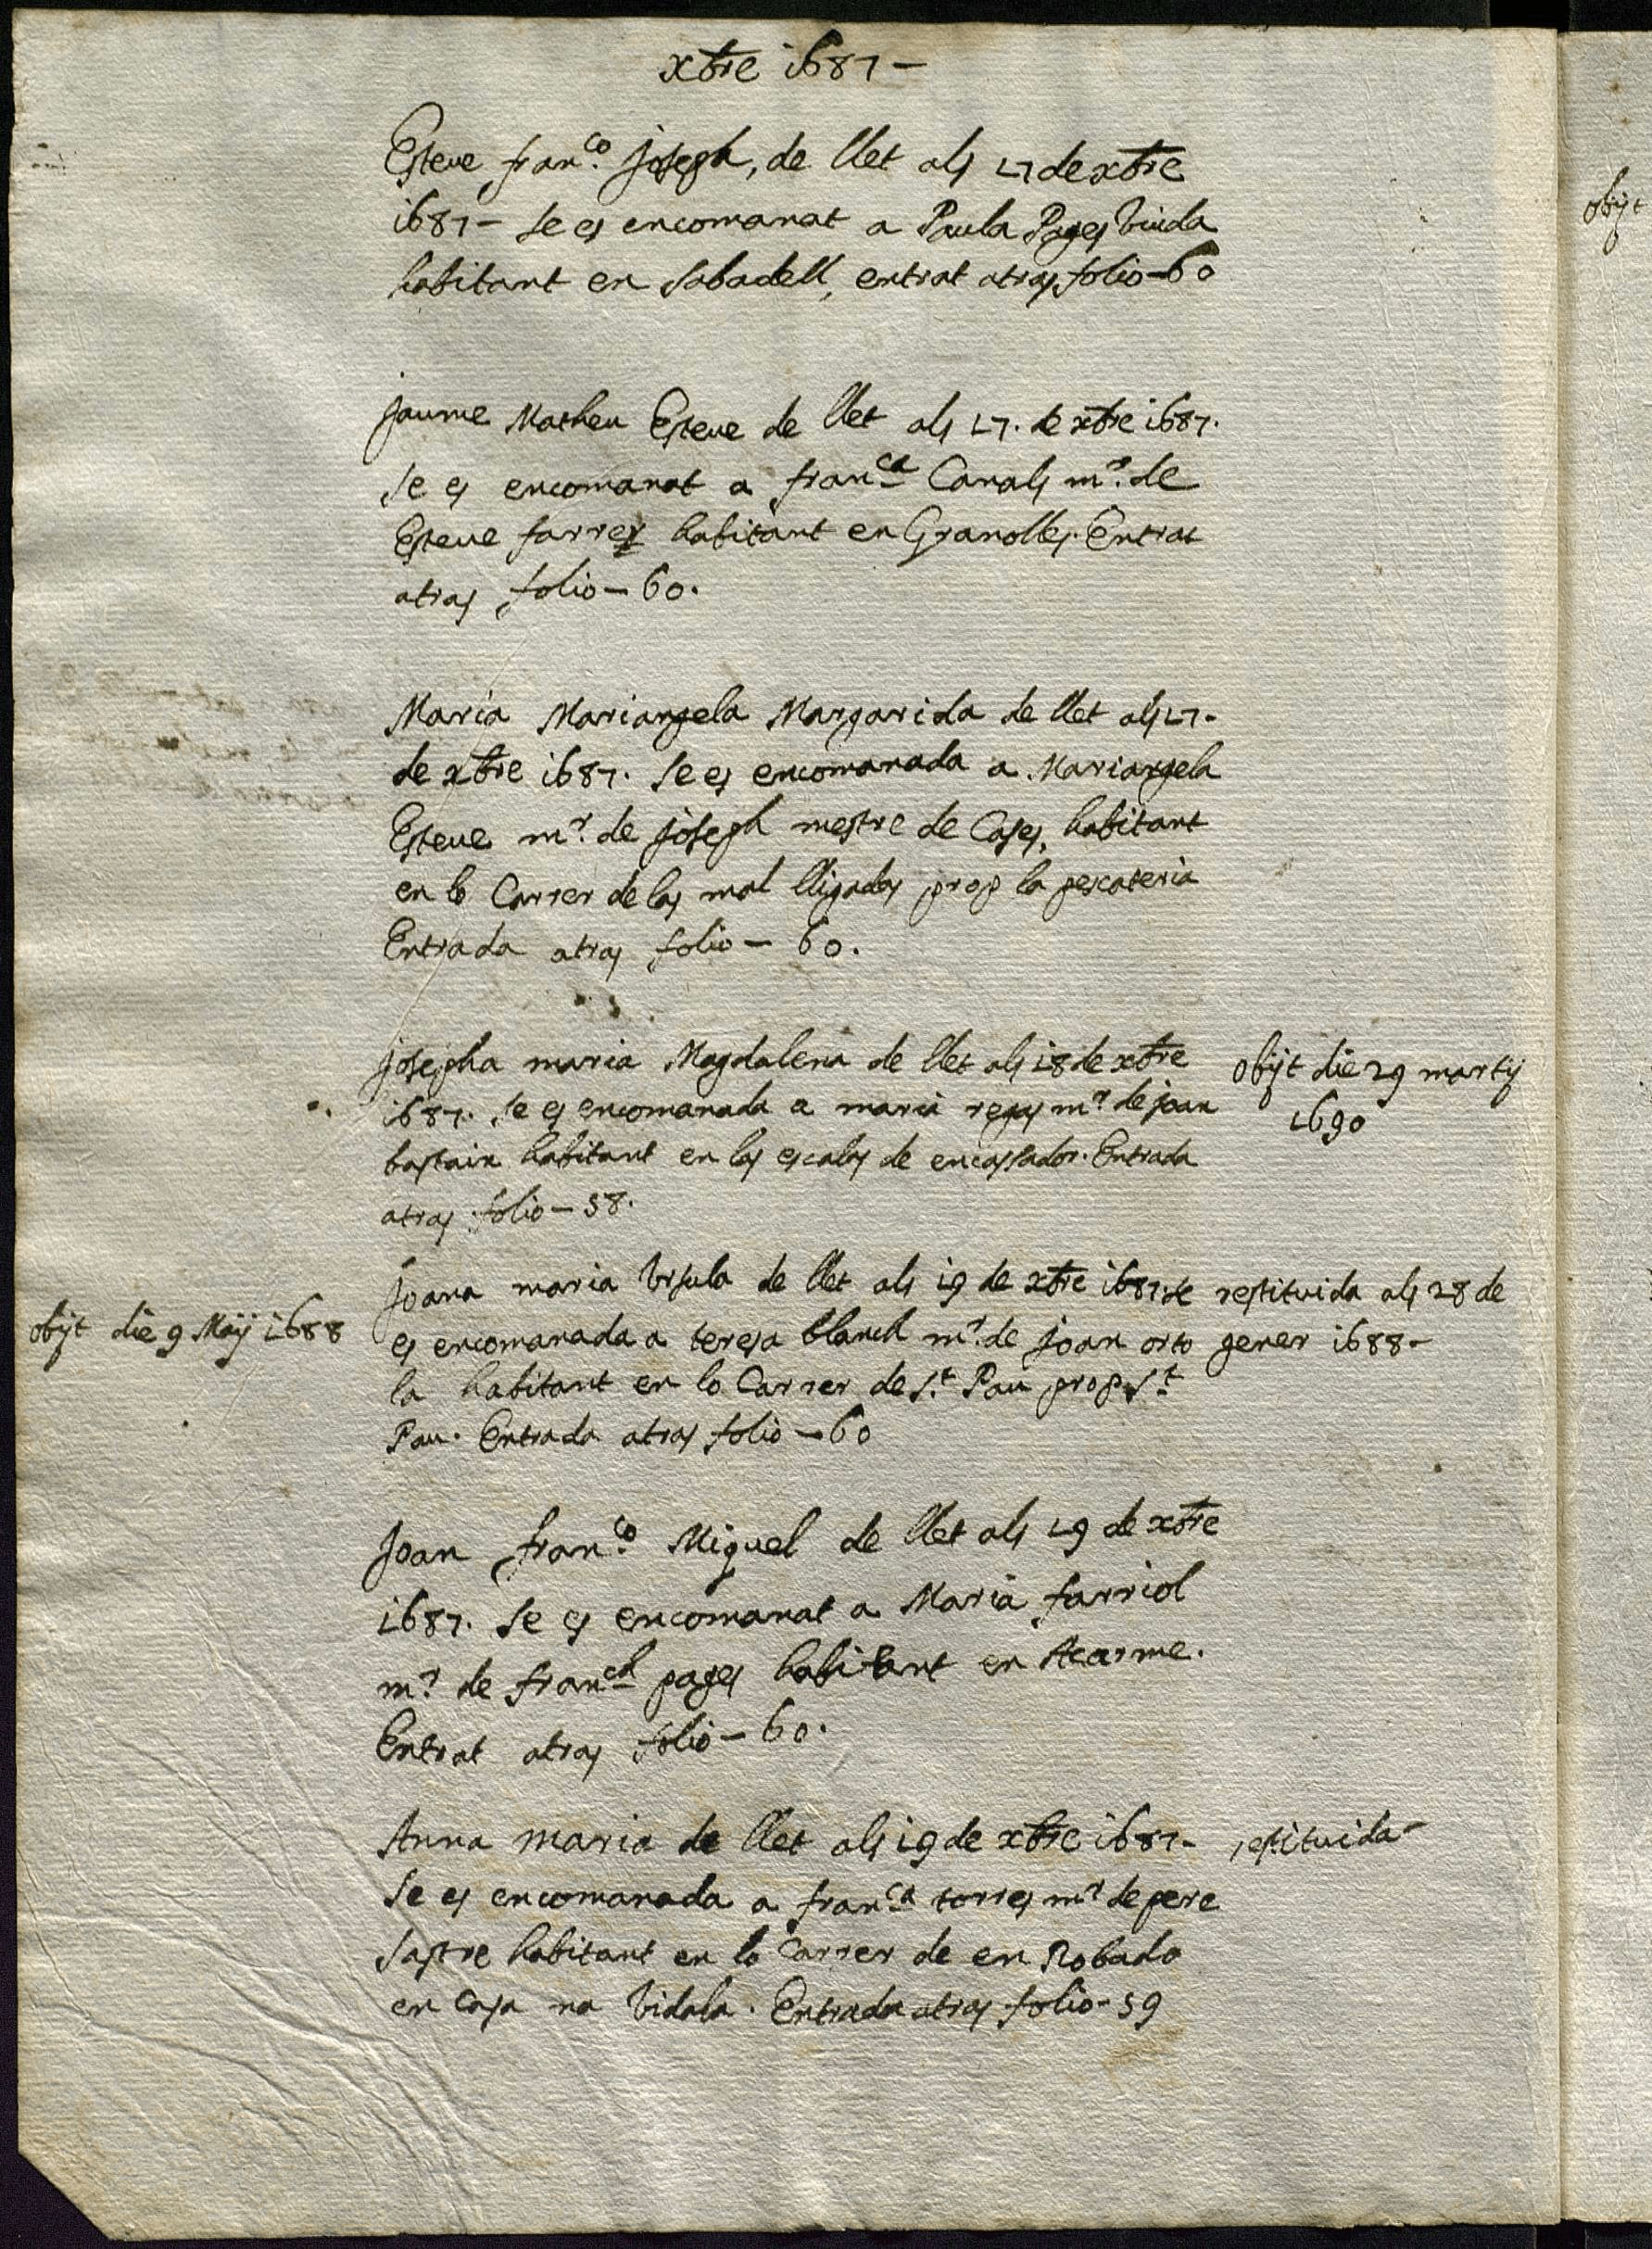 xbre 1687-
Esteve fran.co Joseph, de llet als 17 de xbre
1687- se es encomanat a Paula Pages viuda
habitant en Sabadell, entrat atras folio-60
Jaume Matheu Esteve de llet als 17. de xbre 1687.
se es encomanat a fran.ca Canals m.r de
Esteve farrer habitant en Granolles. Entrat
atras folio-60.
Maria Mariangela Margarida de llet als 17-
de xbre 1687. se es encomanada a Mariangela
Esteve m.r de Joseph mestre de Cases, habitant
en lo Carrer de las mal lligadas prop la pescateria
Entrada atras folio- 60.
Josepha maria Magdalena de llet als 18 de xbre
1687. se es encomanada a maria regas m.r de joan
bastaix habitant en las escalas de encassador. Entrada
atras folio-58.
obijt die 29 martij
1690
Joana maria Vrsula de llet als 19 de xbre 1687. se
es encomanada a teresa blanch m.r de joan orto
la habitant en lo Carrer de s.t Pau prop s.t
Pau. Entrada atras folio-60
obijt die 9 Maij 1688
restituida als 28 de
gener 1688-
Joan fran.co Miguel de llet als 19 de xbre
1687. se es encomanat a Maria farriol
m.r de fran.ch pages habitant en
Entrat atras folio-60.
Anna maria de llet als 19 de xbre 1687-
se es encomanada a fran.ca torres m.r de pere
sastre habitant en lo Carrer de en Robado
en casa na Vidala. Entrada atras folio-59
restituida-
obijt